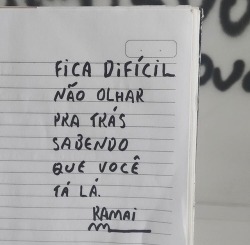 FICA DIFÍCIL
NÃO OLHAR
PRA TRÁS
SABENDO
QUE VOCÊ
TÁ LÁ.
RAMAI